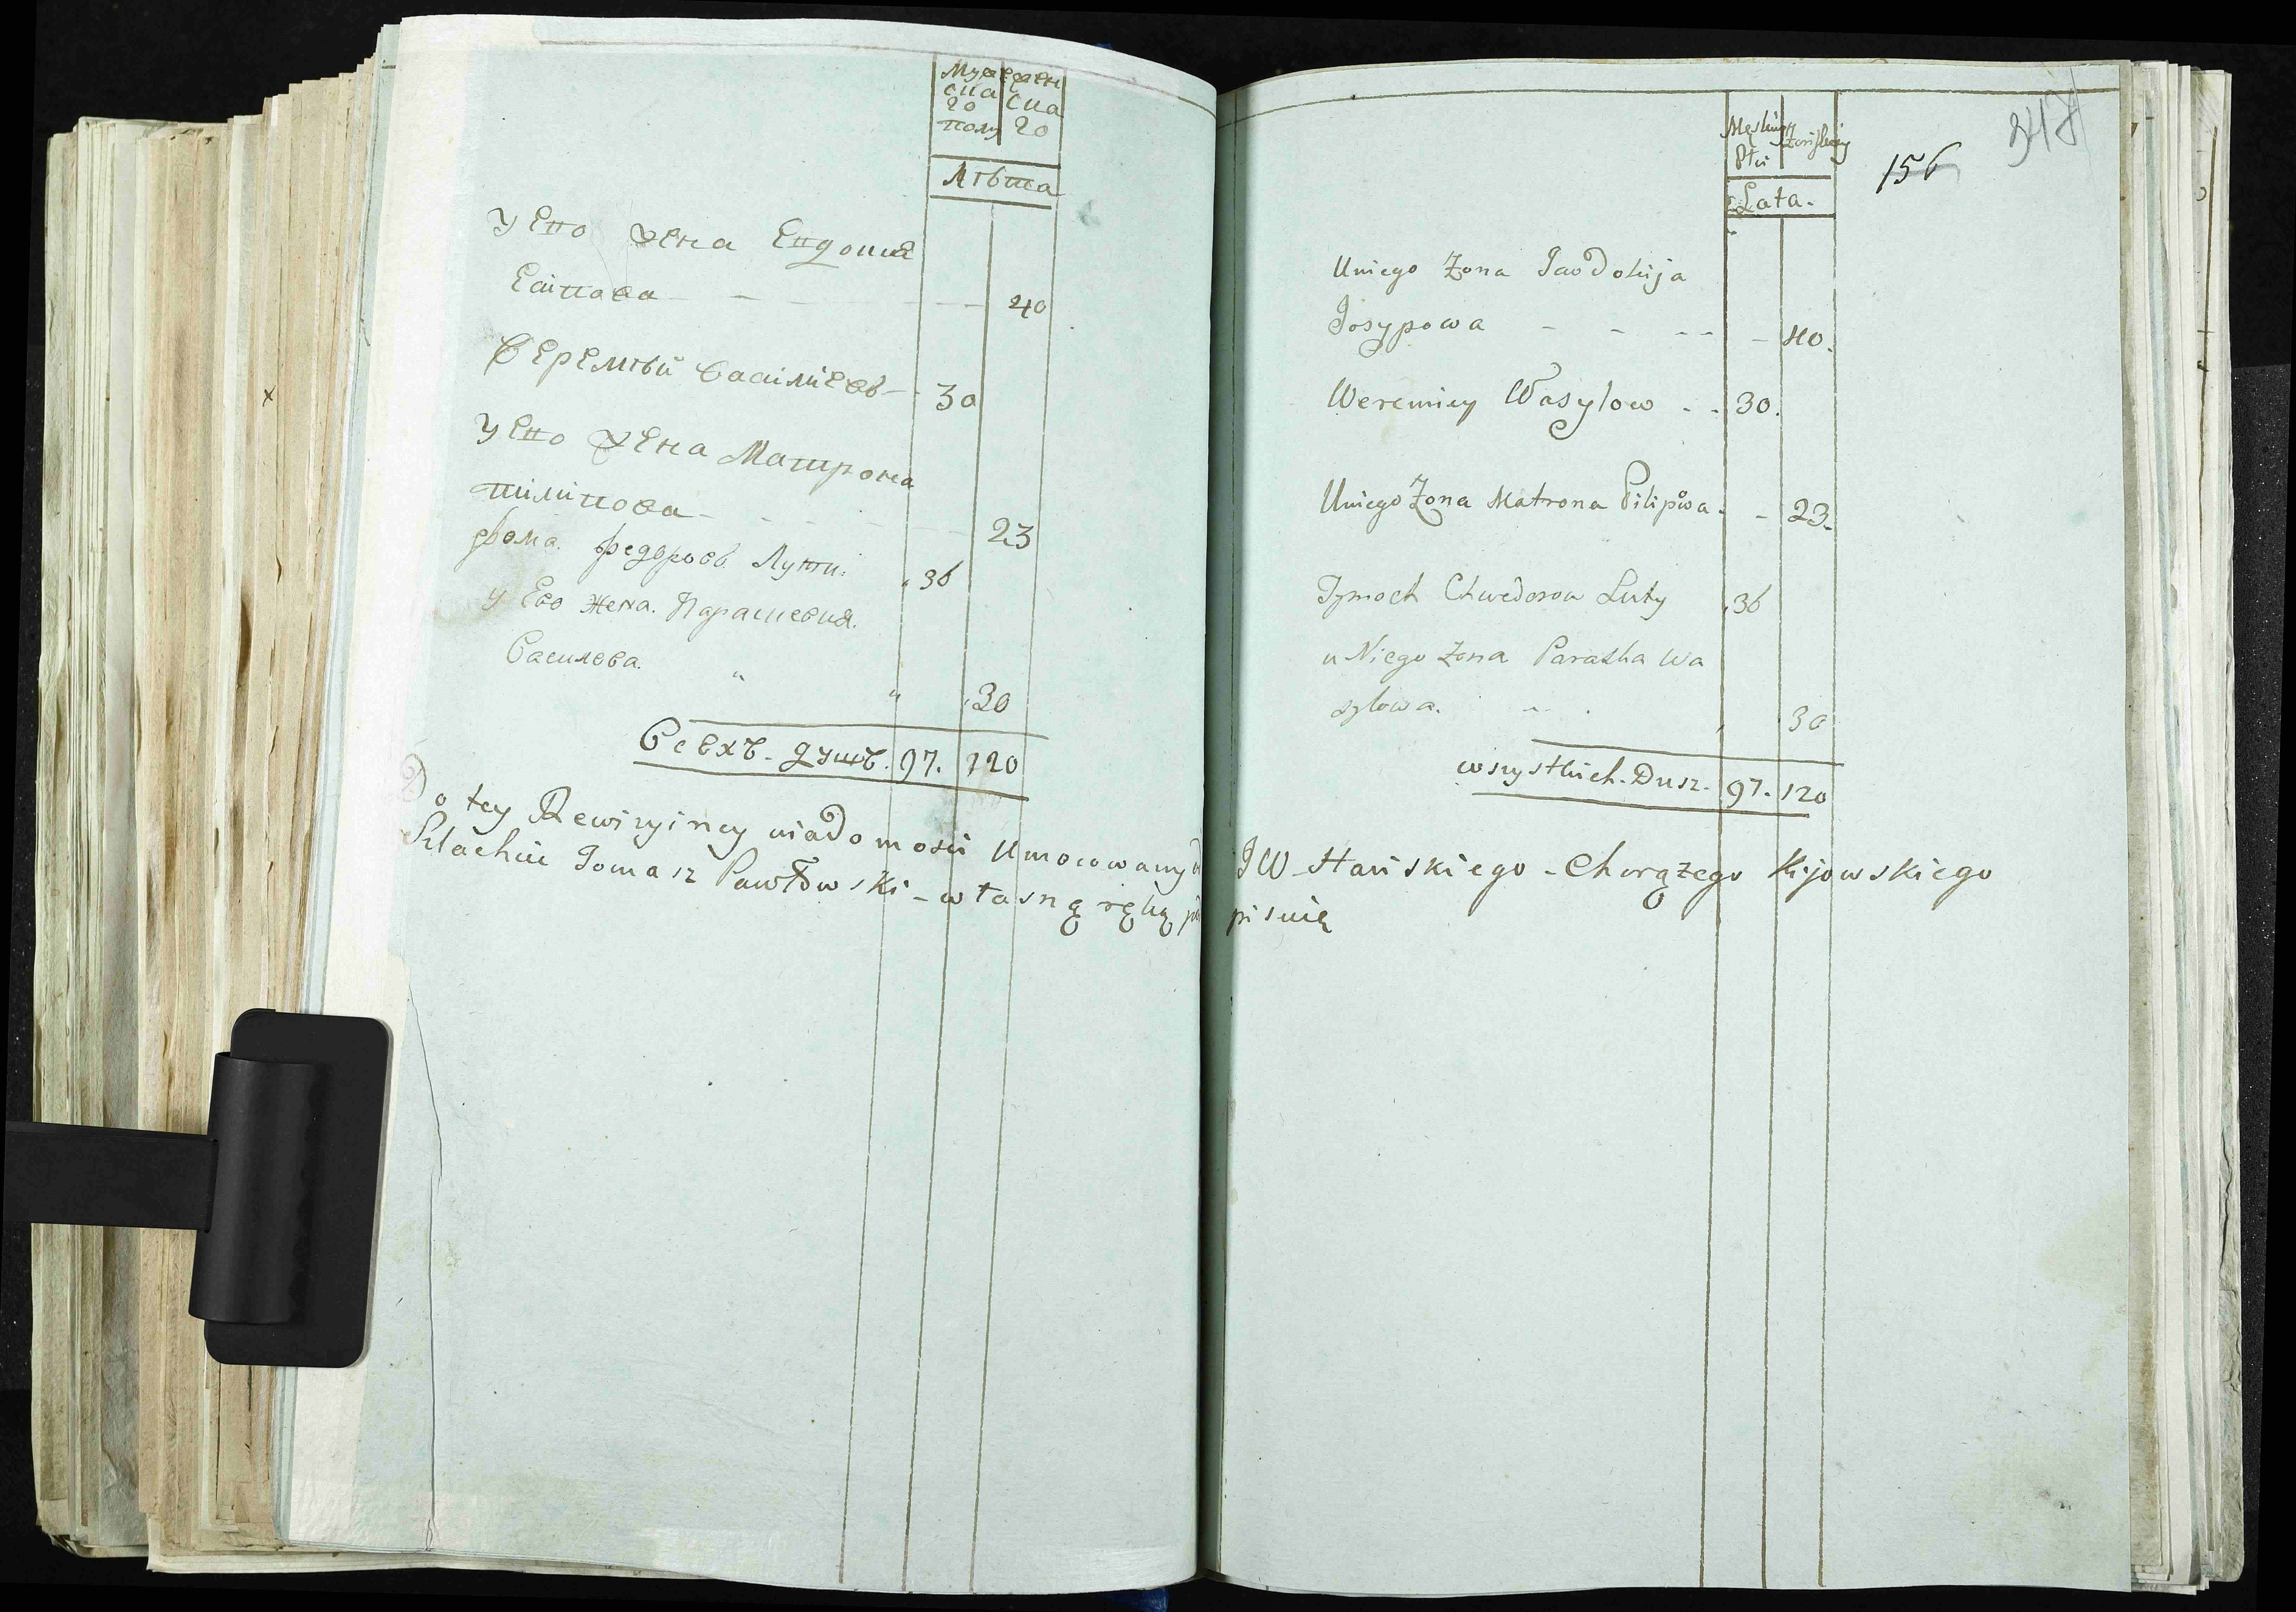 Муже жен
ска ска
го го
полу
Лѣта
У Его жена Евдокия
Есіпова - - - 40
Веремѣй Василіевъ - 30
У Его жена Матрона
Пиліпова - - - 23
Фома Федоровъ Лути: 36
у Его Жена. Параскевия.
Василева. " " 30
Всехъ - душъ. 97. 120
Męskiey Zeńskiey
Płci
Lata.
156
Uniego Zona Jawdokija
Josypowa - - - - 40.
Weremiey Wasylow - - 30.
Uniego Zona Matrona Pilipowa - - 23.
Tymoch Chwedorow Luty 36
u Niego Zona Paraska Wa
sylowa. 30
wszystkich - Dusz - 97. 120
Do tey Rewizyiney wiadomości Umocowany od JW Hańskiego - Chorążego Kijowskiego
Szlachcic Tomasz Pawłowski - własną ręką pisuię